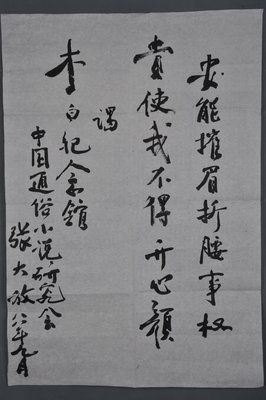 安能摧眉折腰事权
贵使我不得开心颜
谒
李白纪念馆
中国通俗小说研究会
张大放八三年九月